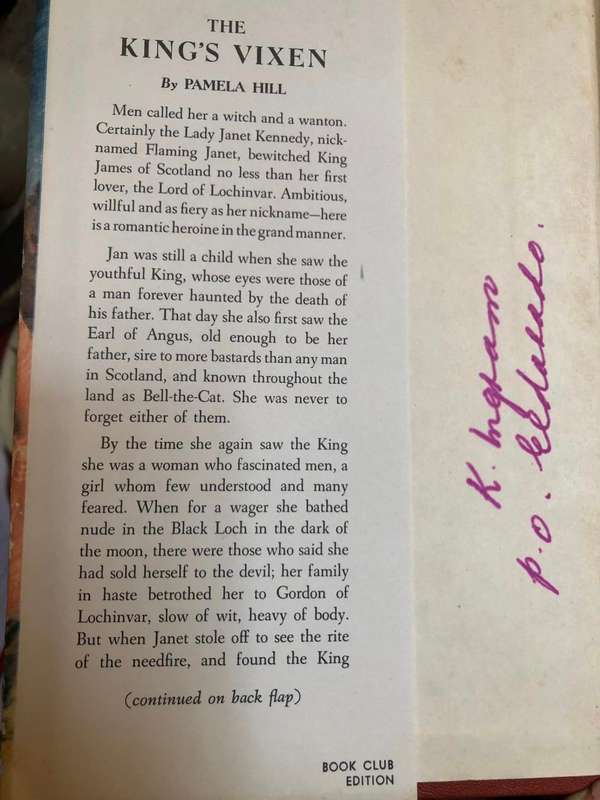 THE
KING'S VIXEN
By PAMELA HILL
Men called her a witch and a wanton.
Certainly the Lady Janet Kennedy, nick-
named Flaming Janet, bewitched King
James of Scotland no less than her first
lover, the Lord of Lochinvar. Ambitious,
willful and as fiery as her nickname—here
is a romantic heroine in the grand manner.
Jan was still a child when she saw the
youthful King, whose eyes were those of
a man forever haunted by the death of
his father. That day she also first saw the
Earl of Angus, old enough to be her
father, sire to more bastards than any man
in Scotland, and known throughout the
land as Bell-the-Cat. She was never to
forget either of them.
By the time she again saw the King
she was a woman who fascinated men, a
girl whom few understood and many
feared. When for a wager she bathed
nude in the Black Loch in the dark of
the moon, there were those who said she
had sold herself to the devil; her family
in haste betrothed her to Gordon of
Lochinvar, slow of wit, heavy of body.
But when Janet stole off to see the rite
of the needfire, and found the King
(continued on back flap)
BOOK CLUB
EDITION
K. Ingram
P.O. Eldorado.